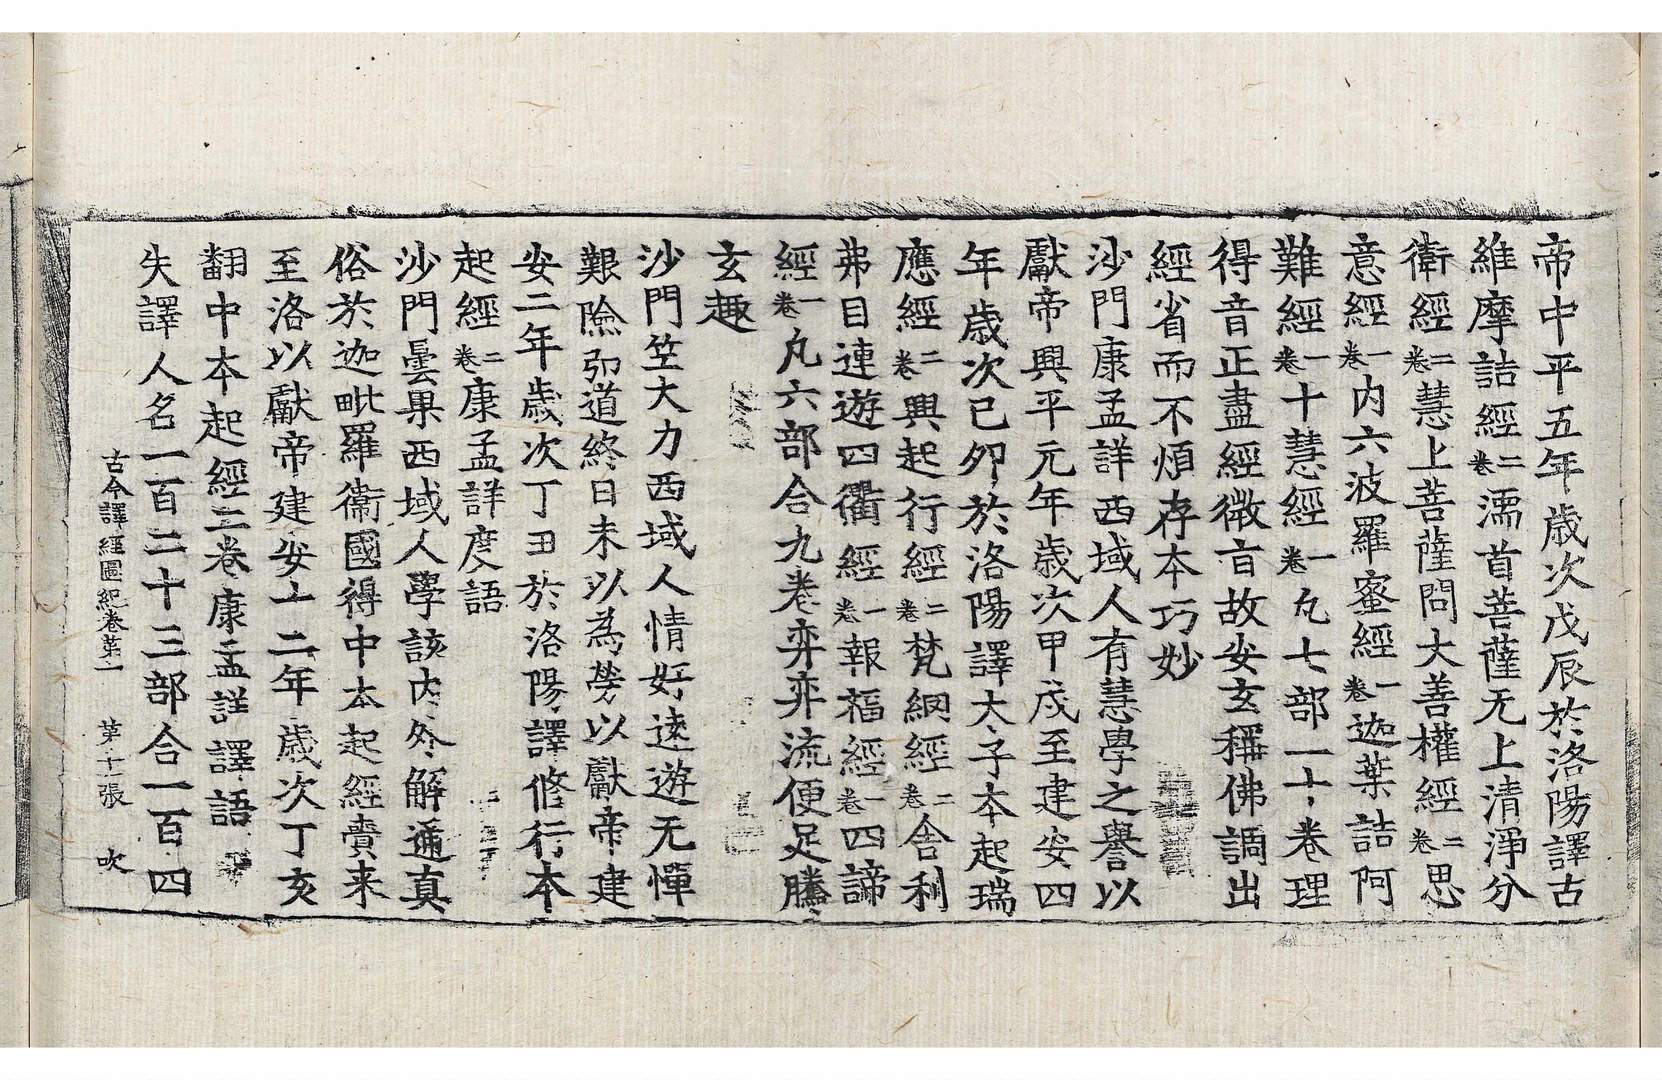 帝中平五年歲次戊辰於洛陽譯古
維摩詰經二卷濡首菩薩无上清淨分
衛經二卷慧上菩薩問大善權經二卷思
意經一卷内六波羅蜜經一卷迦葉詰阿
難經一卷十慧經一卷凢七部一十卷理
得音正盡經微㫖故安玄稱佛調出
經省而不煩存本巧妙
沙門康孟詳西域人有慧學之譽以
獻帝興平元年歲次甲戌至建安四
年歲次己卯於洛陽譯太子本起瑞
應經二卷興起行經二卷梵網經二卷舍利
弗目連遊四衢經一卷報福經一卷四諦
經一卷凡六部合九卷弈弈流便足騰
玄趣
沙門竺大力西域人情好遠遊无憚
艱險弘道終日未以為勞以獻帝建
安二年歲次丁丑於洛陽譯修行本
起經二卷康孟詳度語
沙門曇果西域人學該内外解通真
俗於迦毗羅衛國得中本起經賷来
至洛以獻帝建安十二年歲次丁亥
翻中本起經二卷康孟詳譯語
失譯人名一百二十三部合一百四
古今譯經圖紀卷第一 第十一張 吹